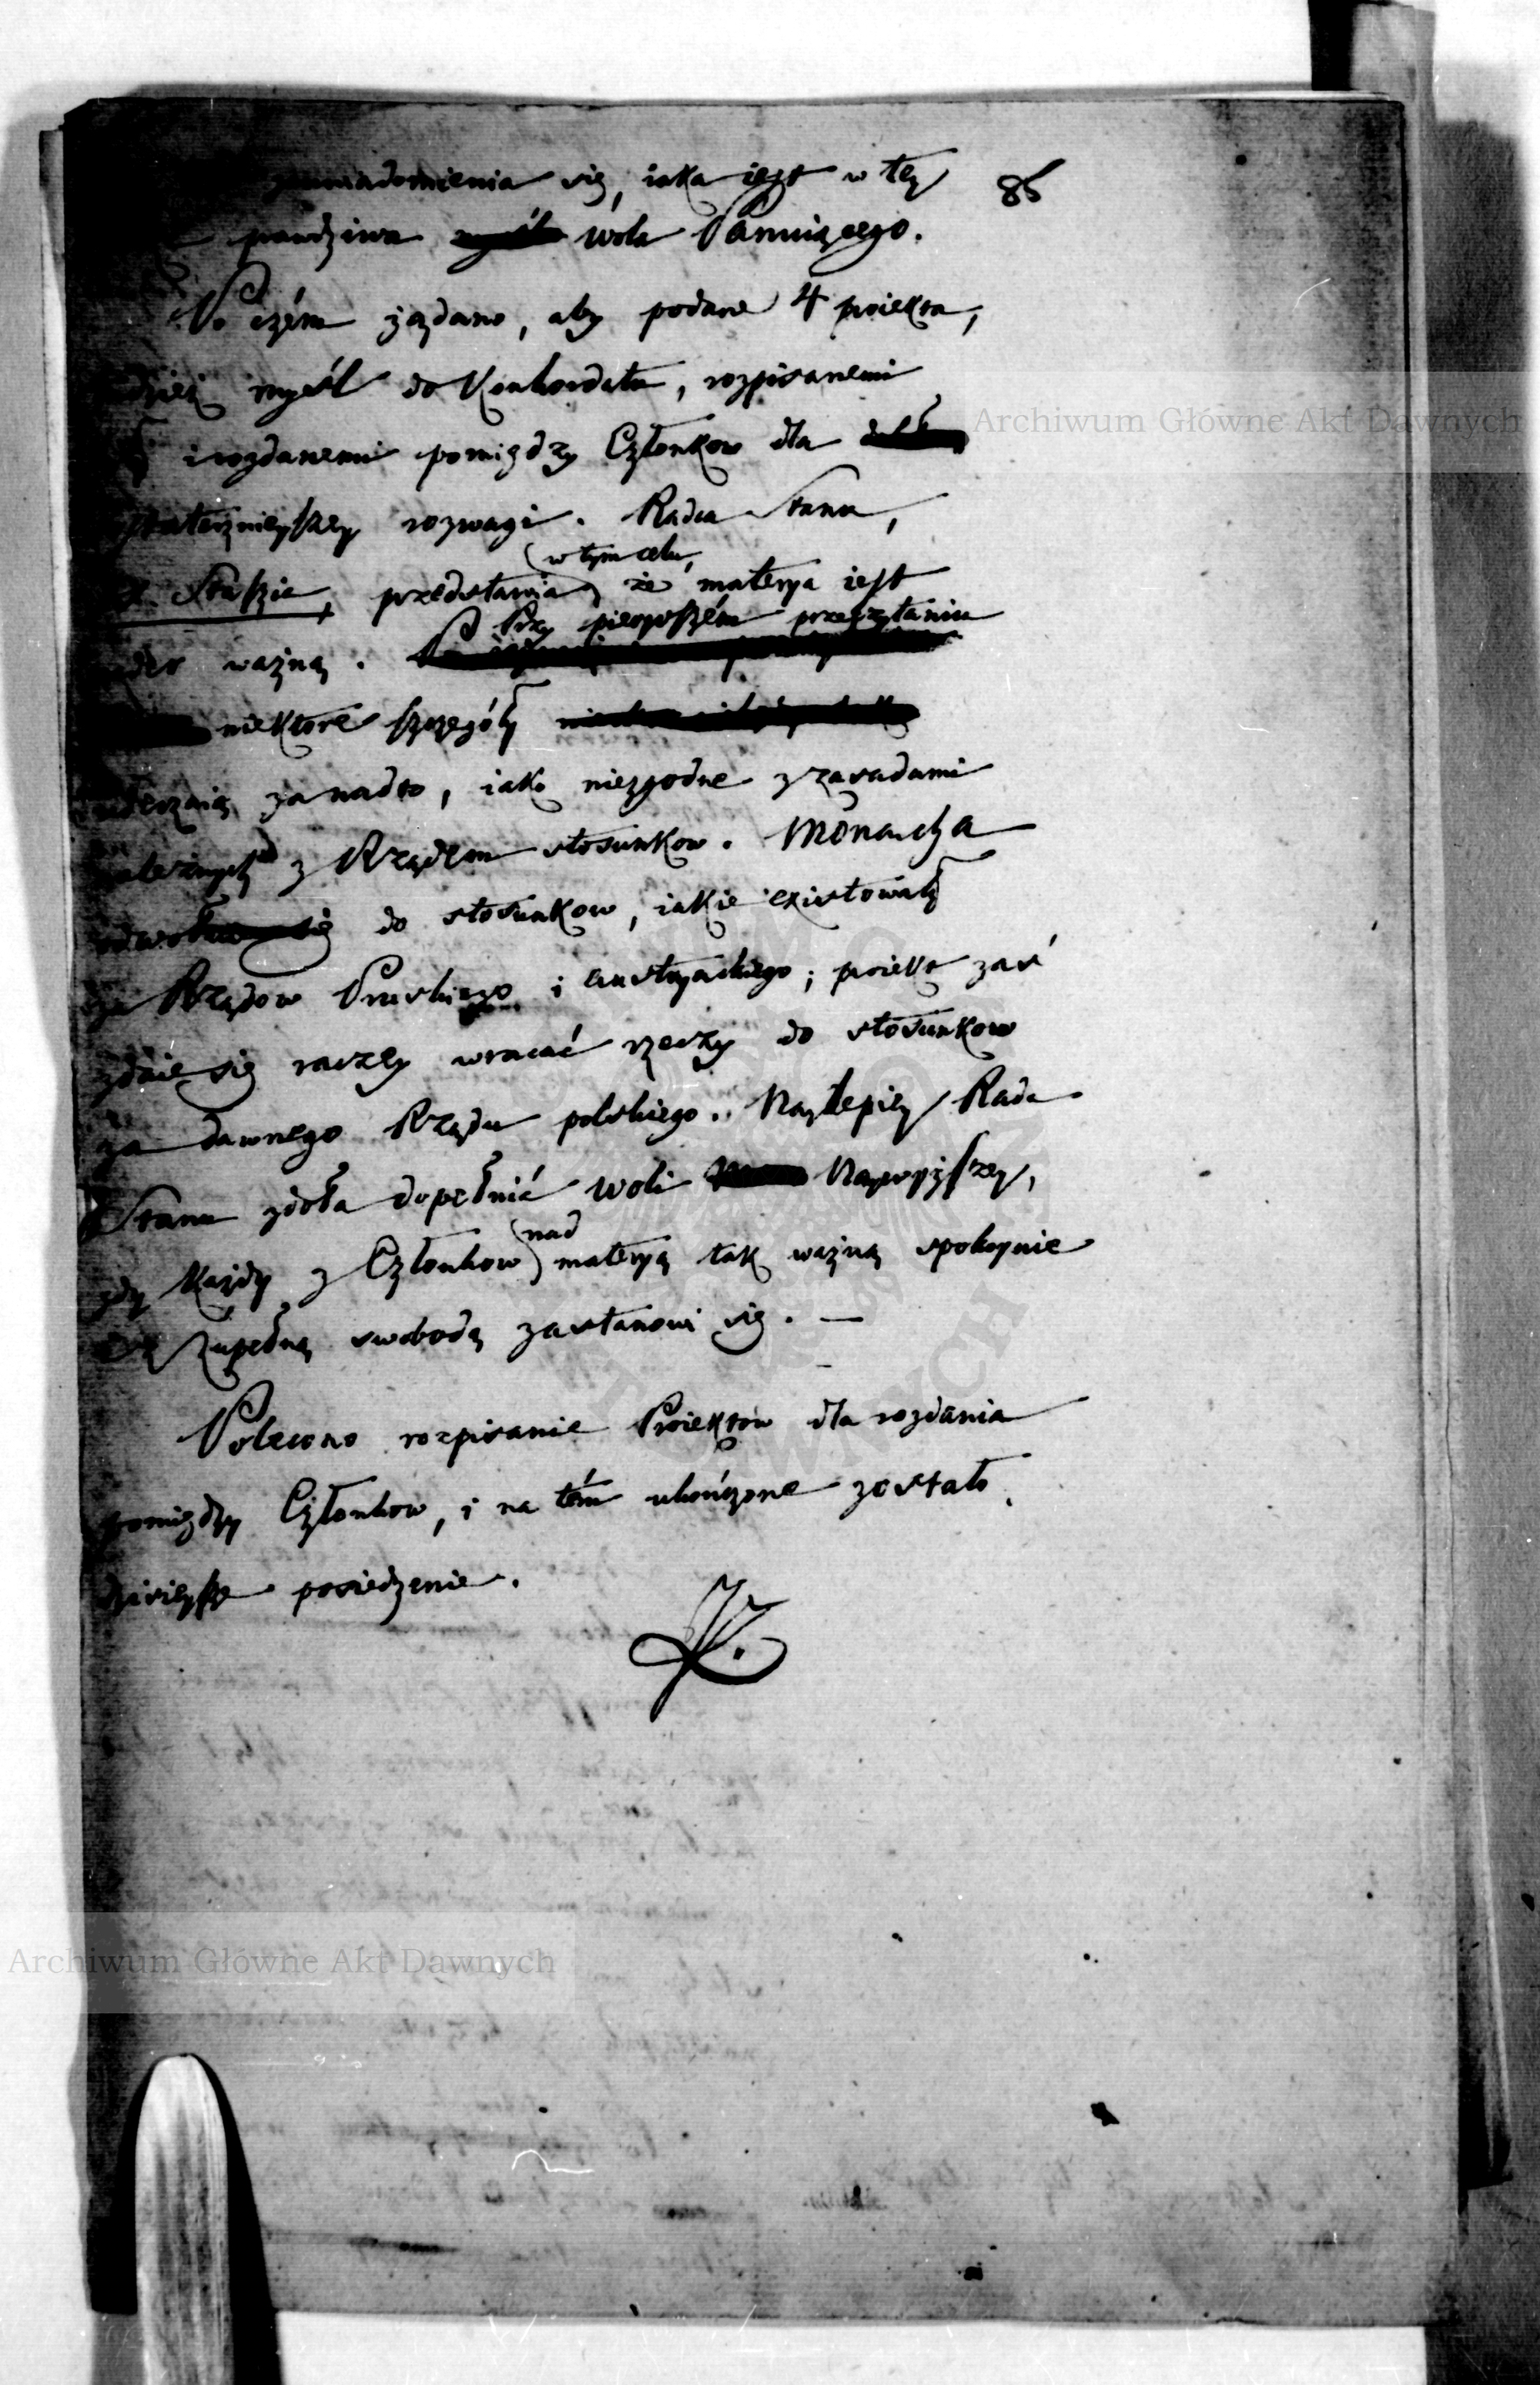 86
zawiadomienia się, iaka iest w tey
prawdziwa wola Panuiącego.
Po czém żądano, aby podane 4 proiekta,
myśl do Konkordatu, rozpisanemi
i rozdanemi pomiędzy Członkow dla
stateczniejszey rozwagi. Radca Stanu,
w tym celu,
Staszic, przedstawia, że materya iest
Przy pierwszém przeczytaniu
ważną.
niektore szczegóły
uderzaią zanadto, iako niezgodne z zasadami
należnych z Rządem stosunkow. Monarcha
odwołuie się do stosunkow, iakie exirtowały
za Rządow Pruskiego i Austryackiego; proiekt zaś
zdaie się raczey wracać rzeczy do stosunkow
za dawnego Rządu polskiego. Naylepiey Rada
Stanu zdoła dopełnić woli Naywyższey,
nad
gdy każdy z Członkow materyą tak ważną spokoynie
zupełną swobodą zastanowi się. —
Polecono rozpisanie Proiektow dla rozdania
pomiędzy Członkow, i na tém ukończone zostało
dzisieysze posiedzenie.
Archiwum Główne Akt Dawnych
Archiwum Główne Akt Dawnych